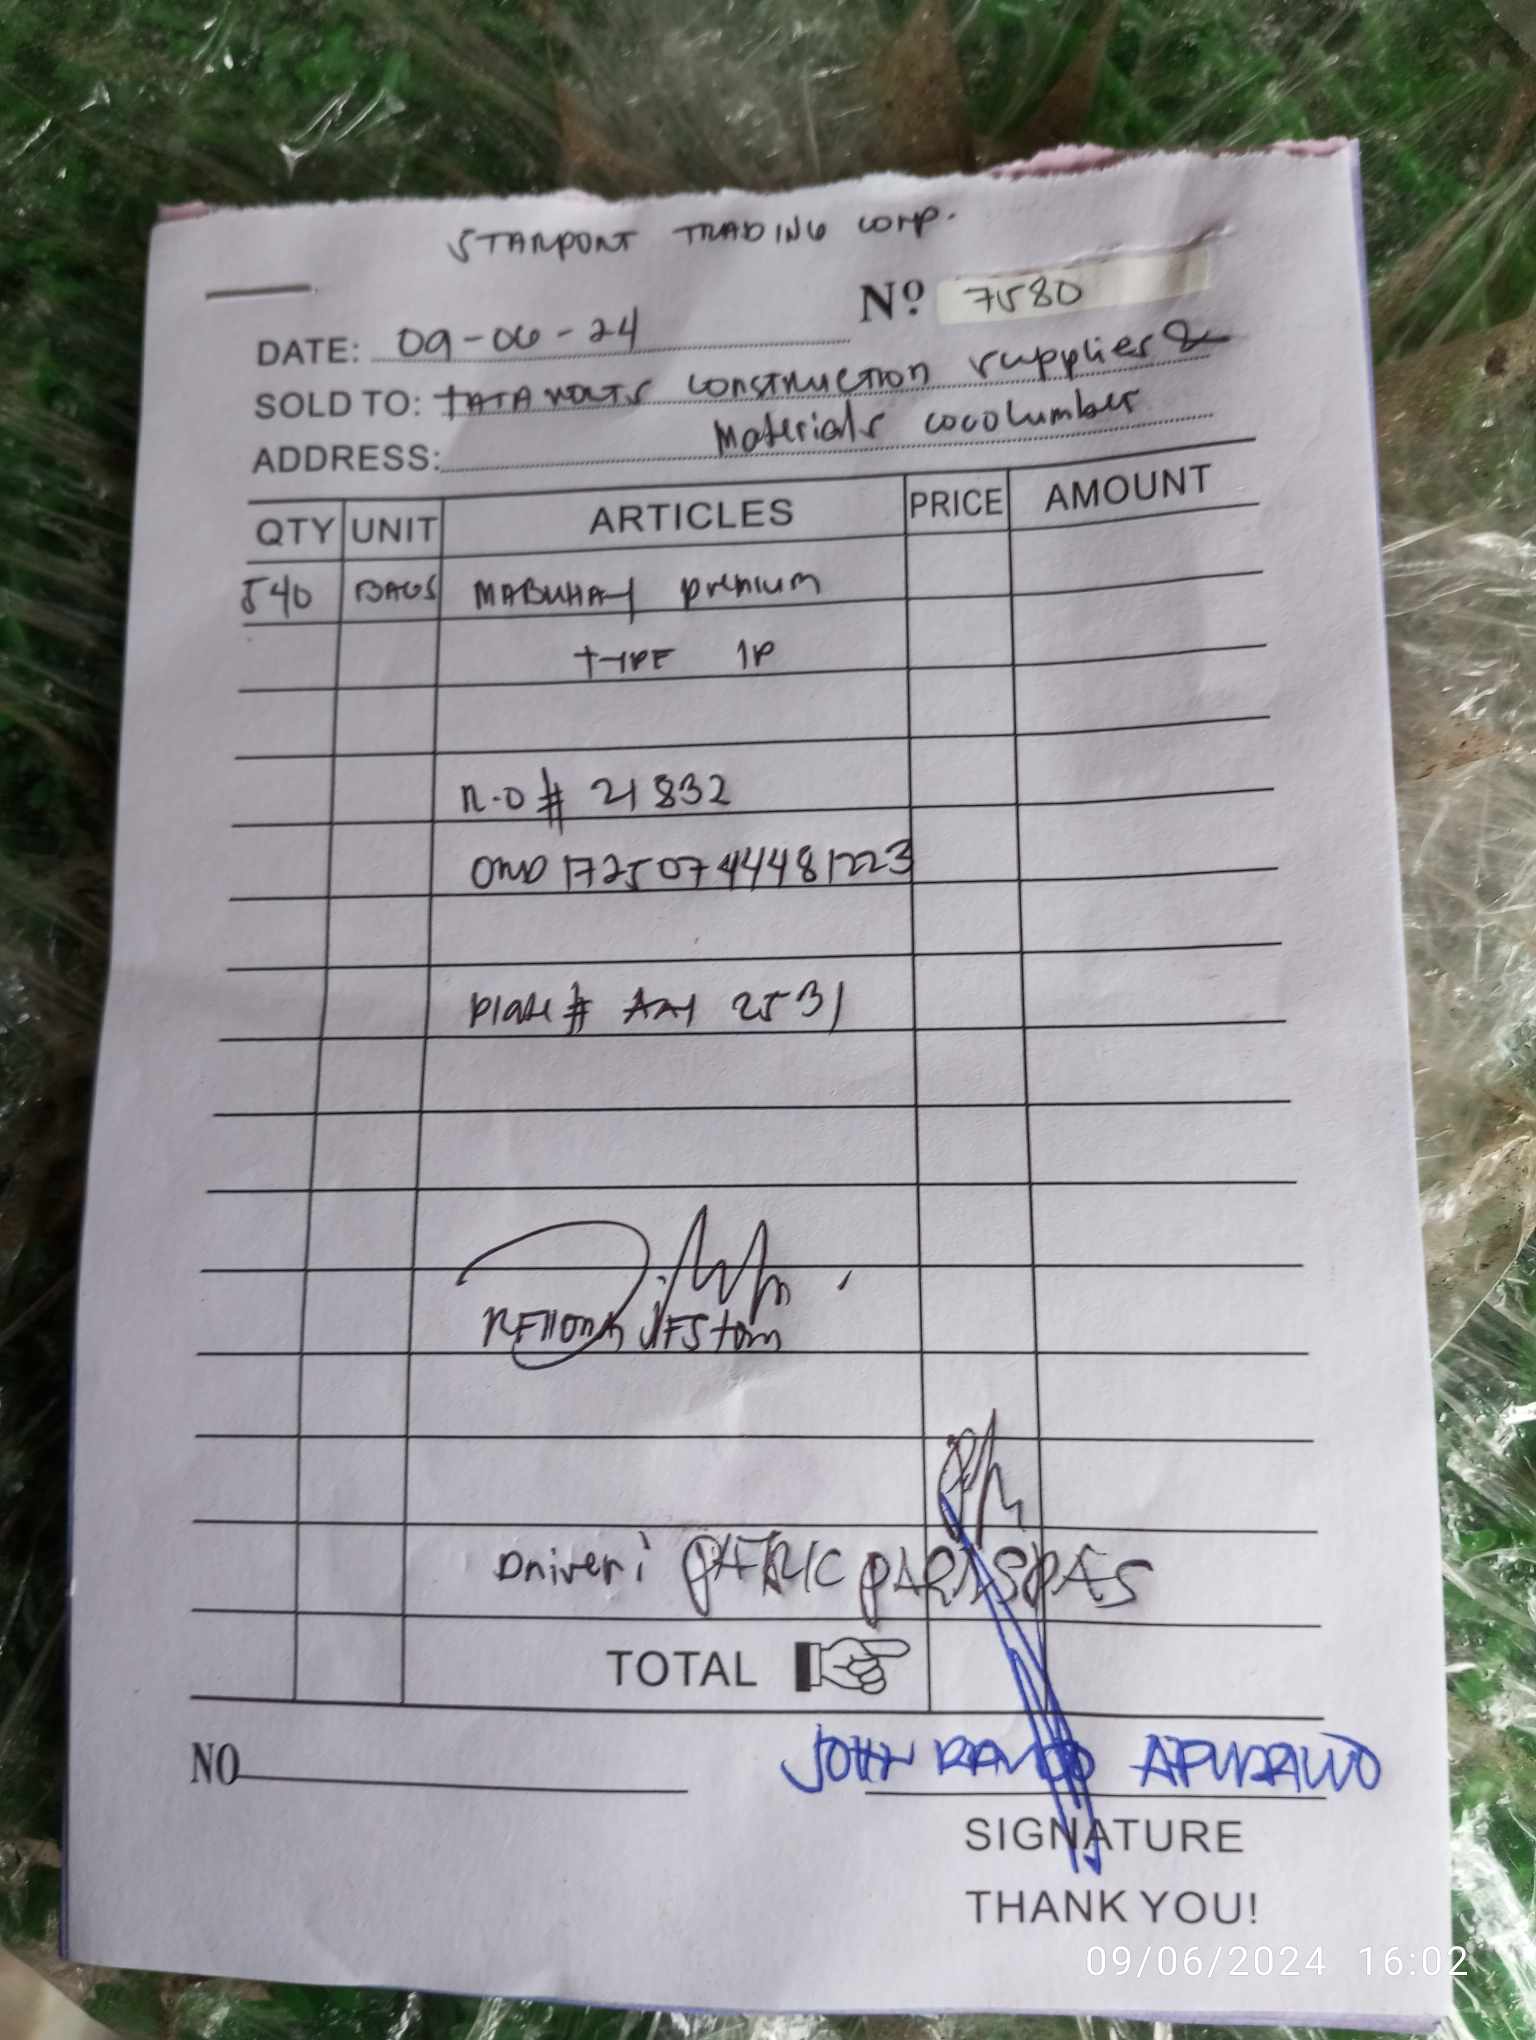 STARPORT TRADING CORP.
Nº 7580
DATE: 09-06-24
SOLD TO: TATAVOLTS CONSTRUCTION SUPPLIES &
ADDRESS: Materials cocolumber
QTY UNIT ARTICLES PRICE AMOUNT
540 BAGS MABUHAY premium
TYPE 1P
R.O # 21832
ORNO 1725074448 1223
Plate # AAY 2531
TOTAL
Driver: PATRIC PARASPAS
NO
JOHN
SIGNATURE
THANK YOU!
09/06/2024 16:02